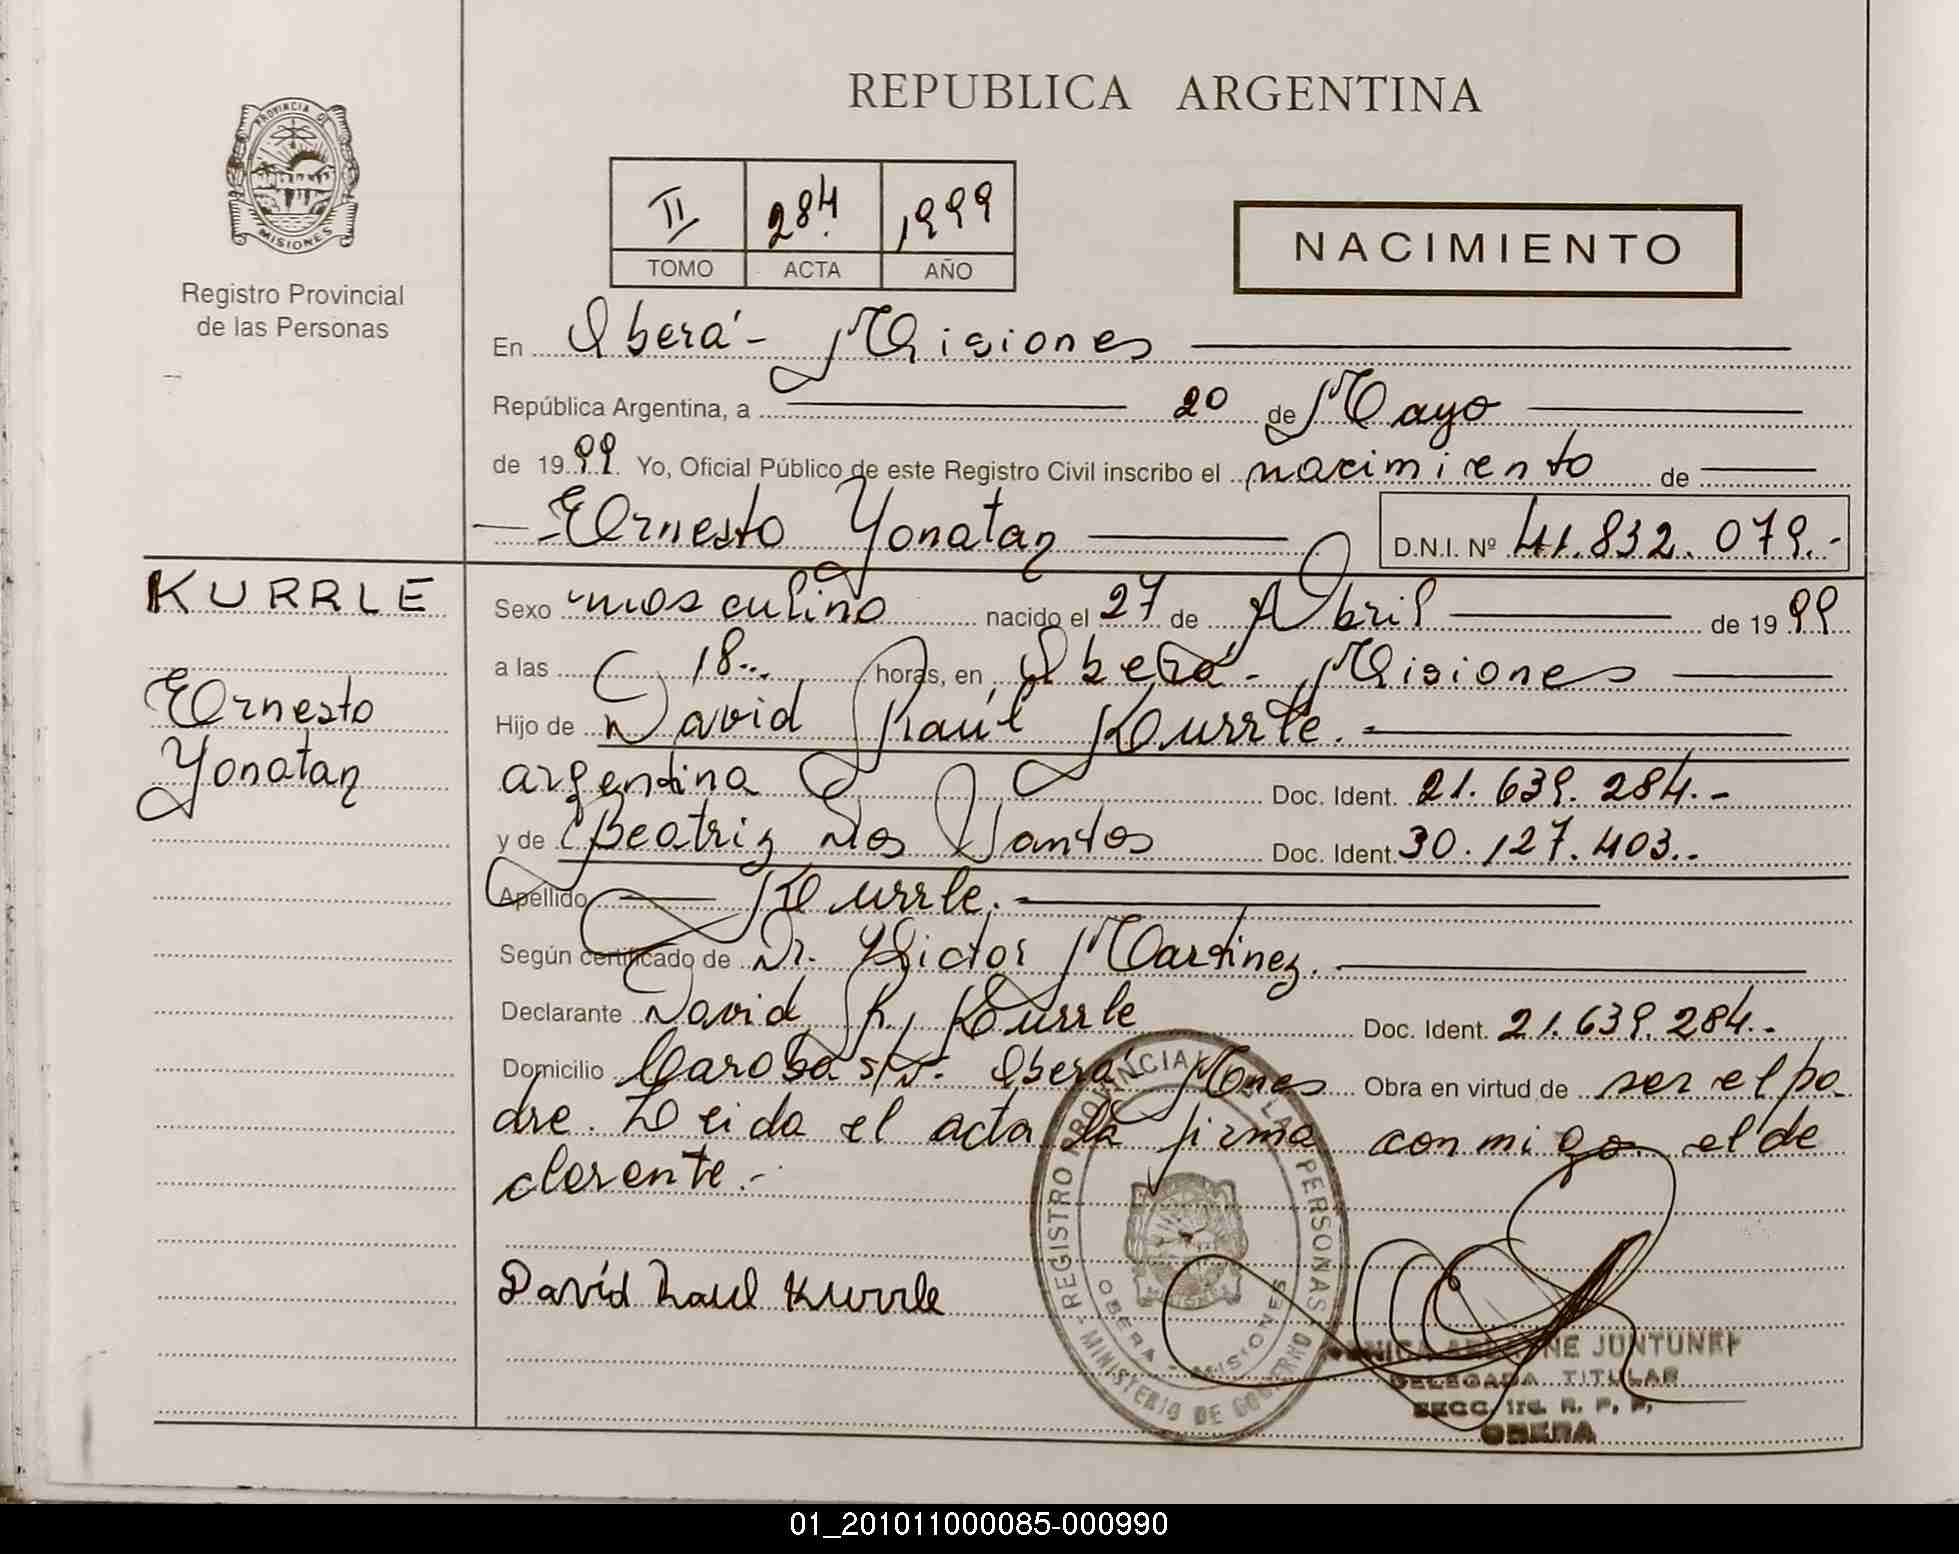 REPUBLICA ARGENTINA
PROVINCIA DE
MISIONES
Registro Provincial
de las Personas
II 284. 1999
TOMO ACTA AÑO
NACIMIENTO
En Oberá - Misiones
República Argentina, a 20 de Mayo
de 1999 Yo, Oficial Público de este Registro Civil inscribo el nacimiento de
Ernesto Yonatan D.N.I. Nº 41.832.079.-
KURRLE
Ernesto
Yonatan
Sexo masculino nacido el 27 de Abril de 1999
a las 18.. horas, en Oberá - Misiones
Hijo de David Raúl Kurrle.
argentina Doc. Ident. 21.639.284.-
y de Beatriz Dos Santos Doc. Ident. 30.127.403..
Apellido Kurrle.
Según certificado de Dr. Victor Martinez.
Declarante David R. Kurrle Doc. Ident. 21.639.284.-
Domicilio s/n. Oberá Mnes Obra en virtud de ser el pa
dre. Leida el acta la firma conmigo el de
clarante.-
David Raul Kurrle
REGISTRO PROVINCIAL DE LAS PERSONAS
MINISTERIO DE GOBIERNO
OBERA - MISIONES
JUNTUNEN
DELEGADA TITULAR
SECC. 1ra. R. P. P.
OBERA
01_201011000085-000990